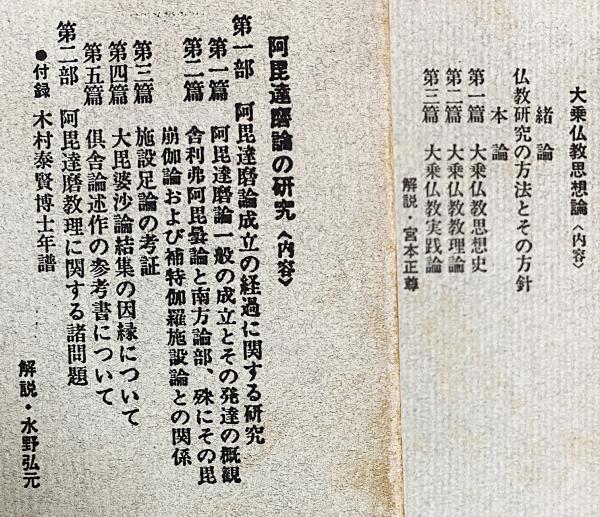 大乗仏教思想論〈内容〉
緒論
仏教研究の方法とその方針
本論
第一篇 大乗仏教思想史
第二篇 大乗仏教教理論
第三篇 大乗仏教実践論
解説・宮本正尊
阿毘達磨論の研究〈内容〉
第一部 阿毘達磨論成立の経過に関する研究
第一篇 阿毘達磨論一般の成立とその発達の概観
第二篇 舎利弗阿毘曇論と南方論部、殊にその毘
崩伽論および補特伽羅施設論との関係
第三篇 施設足論の考証
第四篇 大毘婆沙論結集の因縁について
第五篇 倶舎論述作の参考書について
第二部 阿毘達磨教理に関する諸問題
●付録 木村泰賢博士年譜
解説・水野弘元